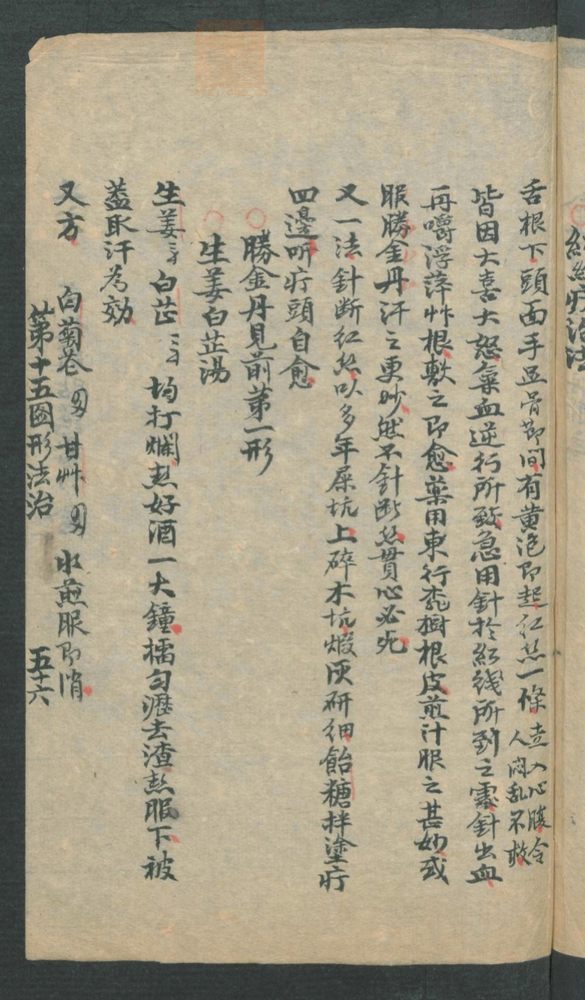 紅絲疔治法
舌根下頭面手足骨節间有黄泡即起红絲一條走入心腹令人闷乱不救
皆因大喜大怒氣血逆行所致急用針於紅綫所到之處針出血
再嚼浮萍艸根敷之即愈藥用東行桃樹根皮煎汁服之甚妙或
服勝金丹汗之更妙然不針断絲貫心必死
又一法針断红絲以多年屎坑上碎木坑煅灰研细飴糖拌塗疔
四邊听疔頭自愈
勝金丹見前第一形
生姜白芷湯
生姜 白芷 均打爛热好酒一大鐘擂匀瀝去渣热服下被
蓋取汗為効
又方 白菊花 甘艸 水煎服即消
第十五图形法治 五十六